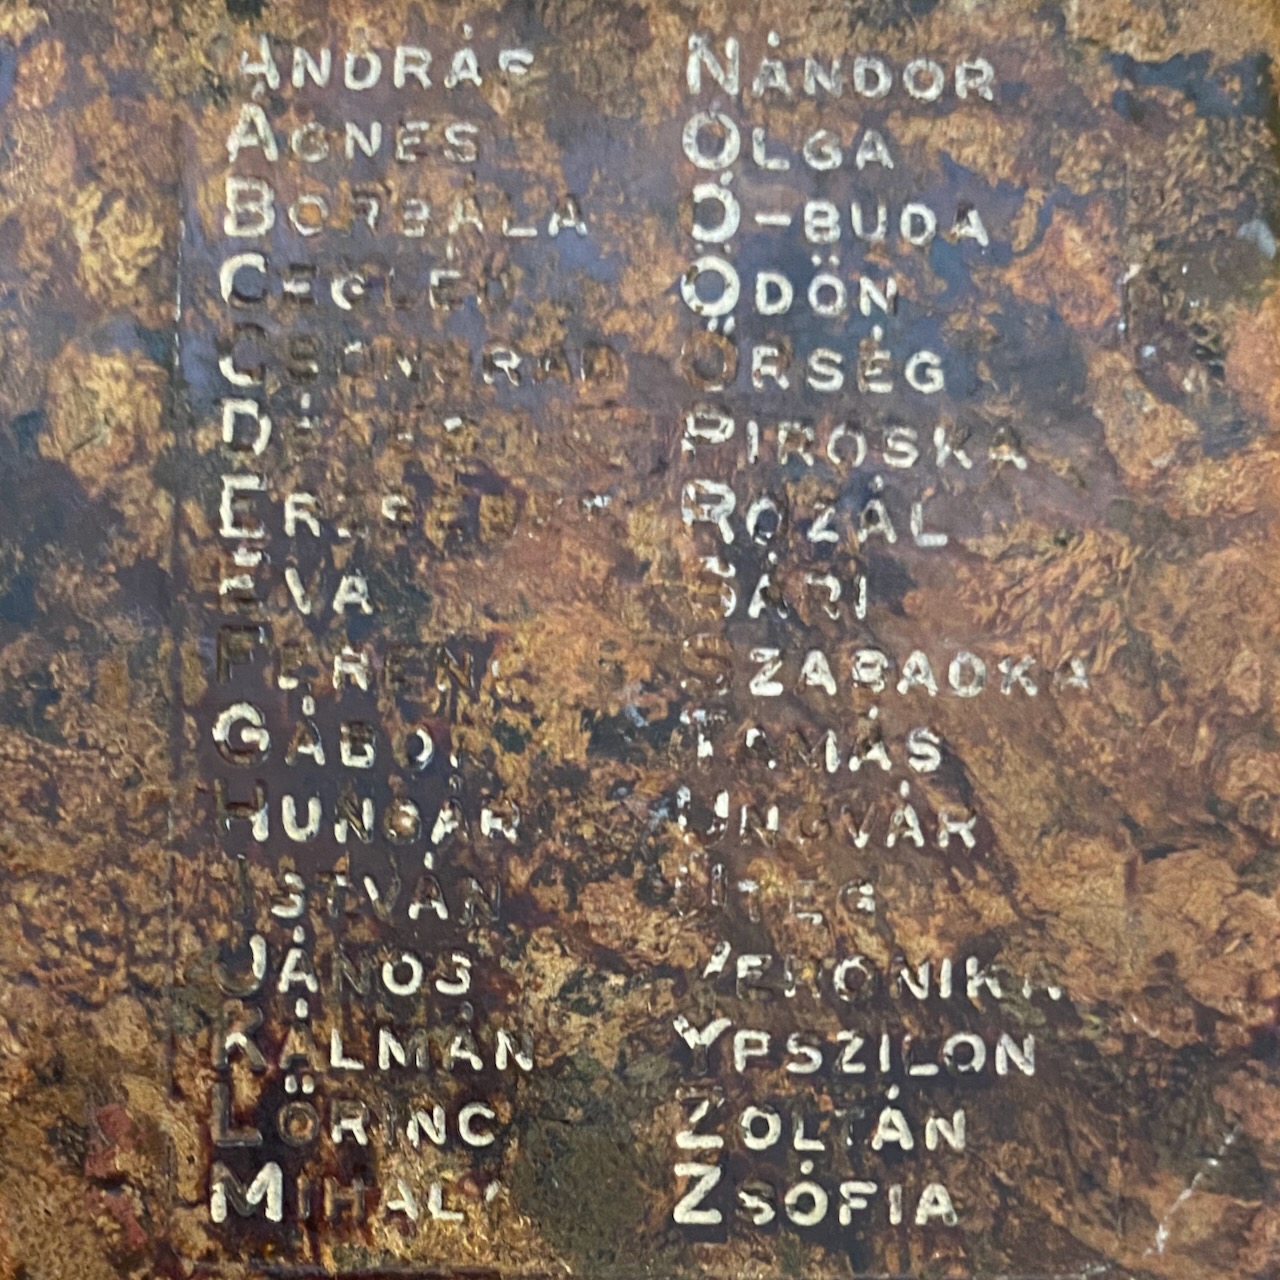 ANDRÁS
ÁGNES
BORBÁLA
CEGLÉD
CSONGRÁD
ERZSÉBET
ÉVA
FERENC
GÁBOR
HUNGÁR
ISTVÁN
JÁNOS
KÁLMÁN
LŐRINC
MIHÁLY
NÁNDOR
OLGA
Ó-BUDA
ÖDÖN
ŐRSÉG
PIROSKA
ROZÁL
SÁRI
SZABADKA
TAMÁS
UNGVÁR
ÜTEG
VERONIKA
YPSZILON
ZOLTÁN
ZSÓFIA